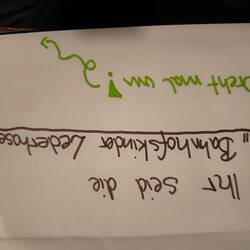 Ihr seid die
"Bahnhofskinder Lederhose
Dreht mal um!